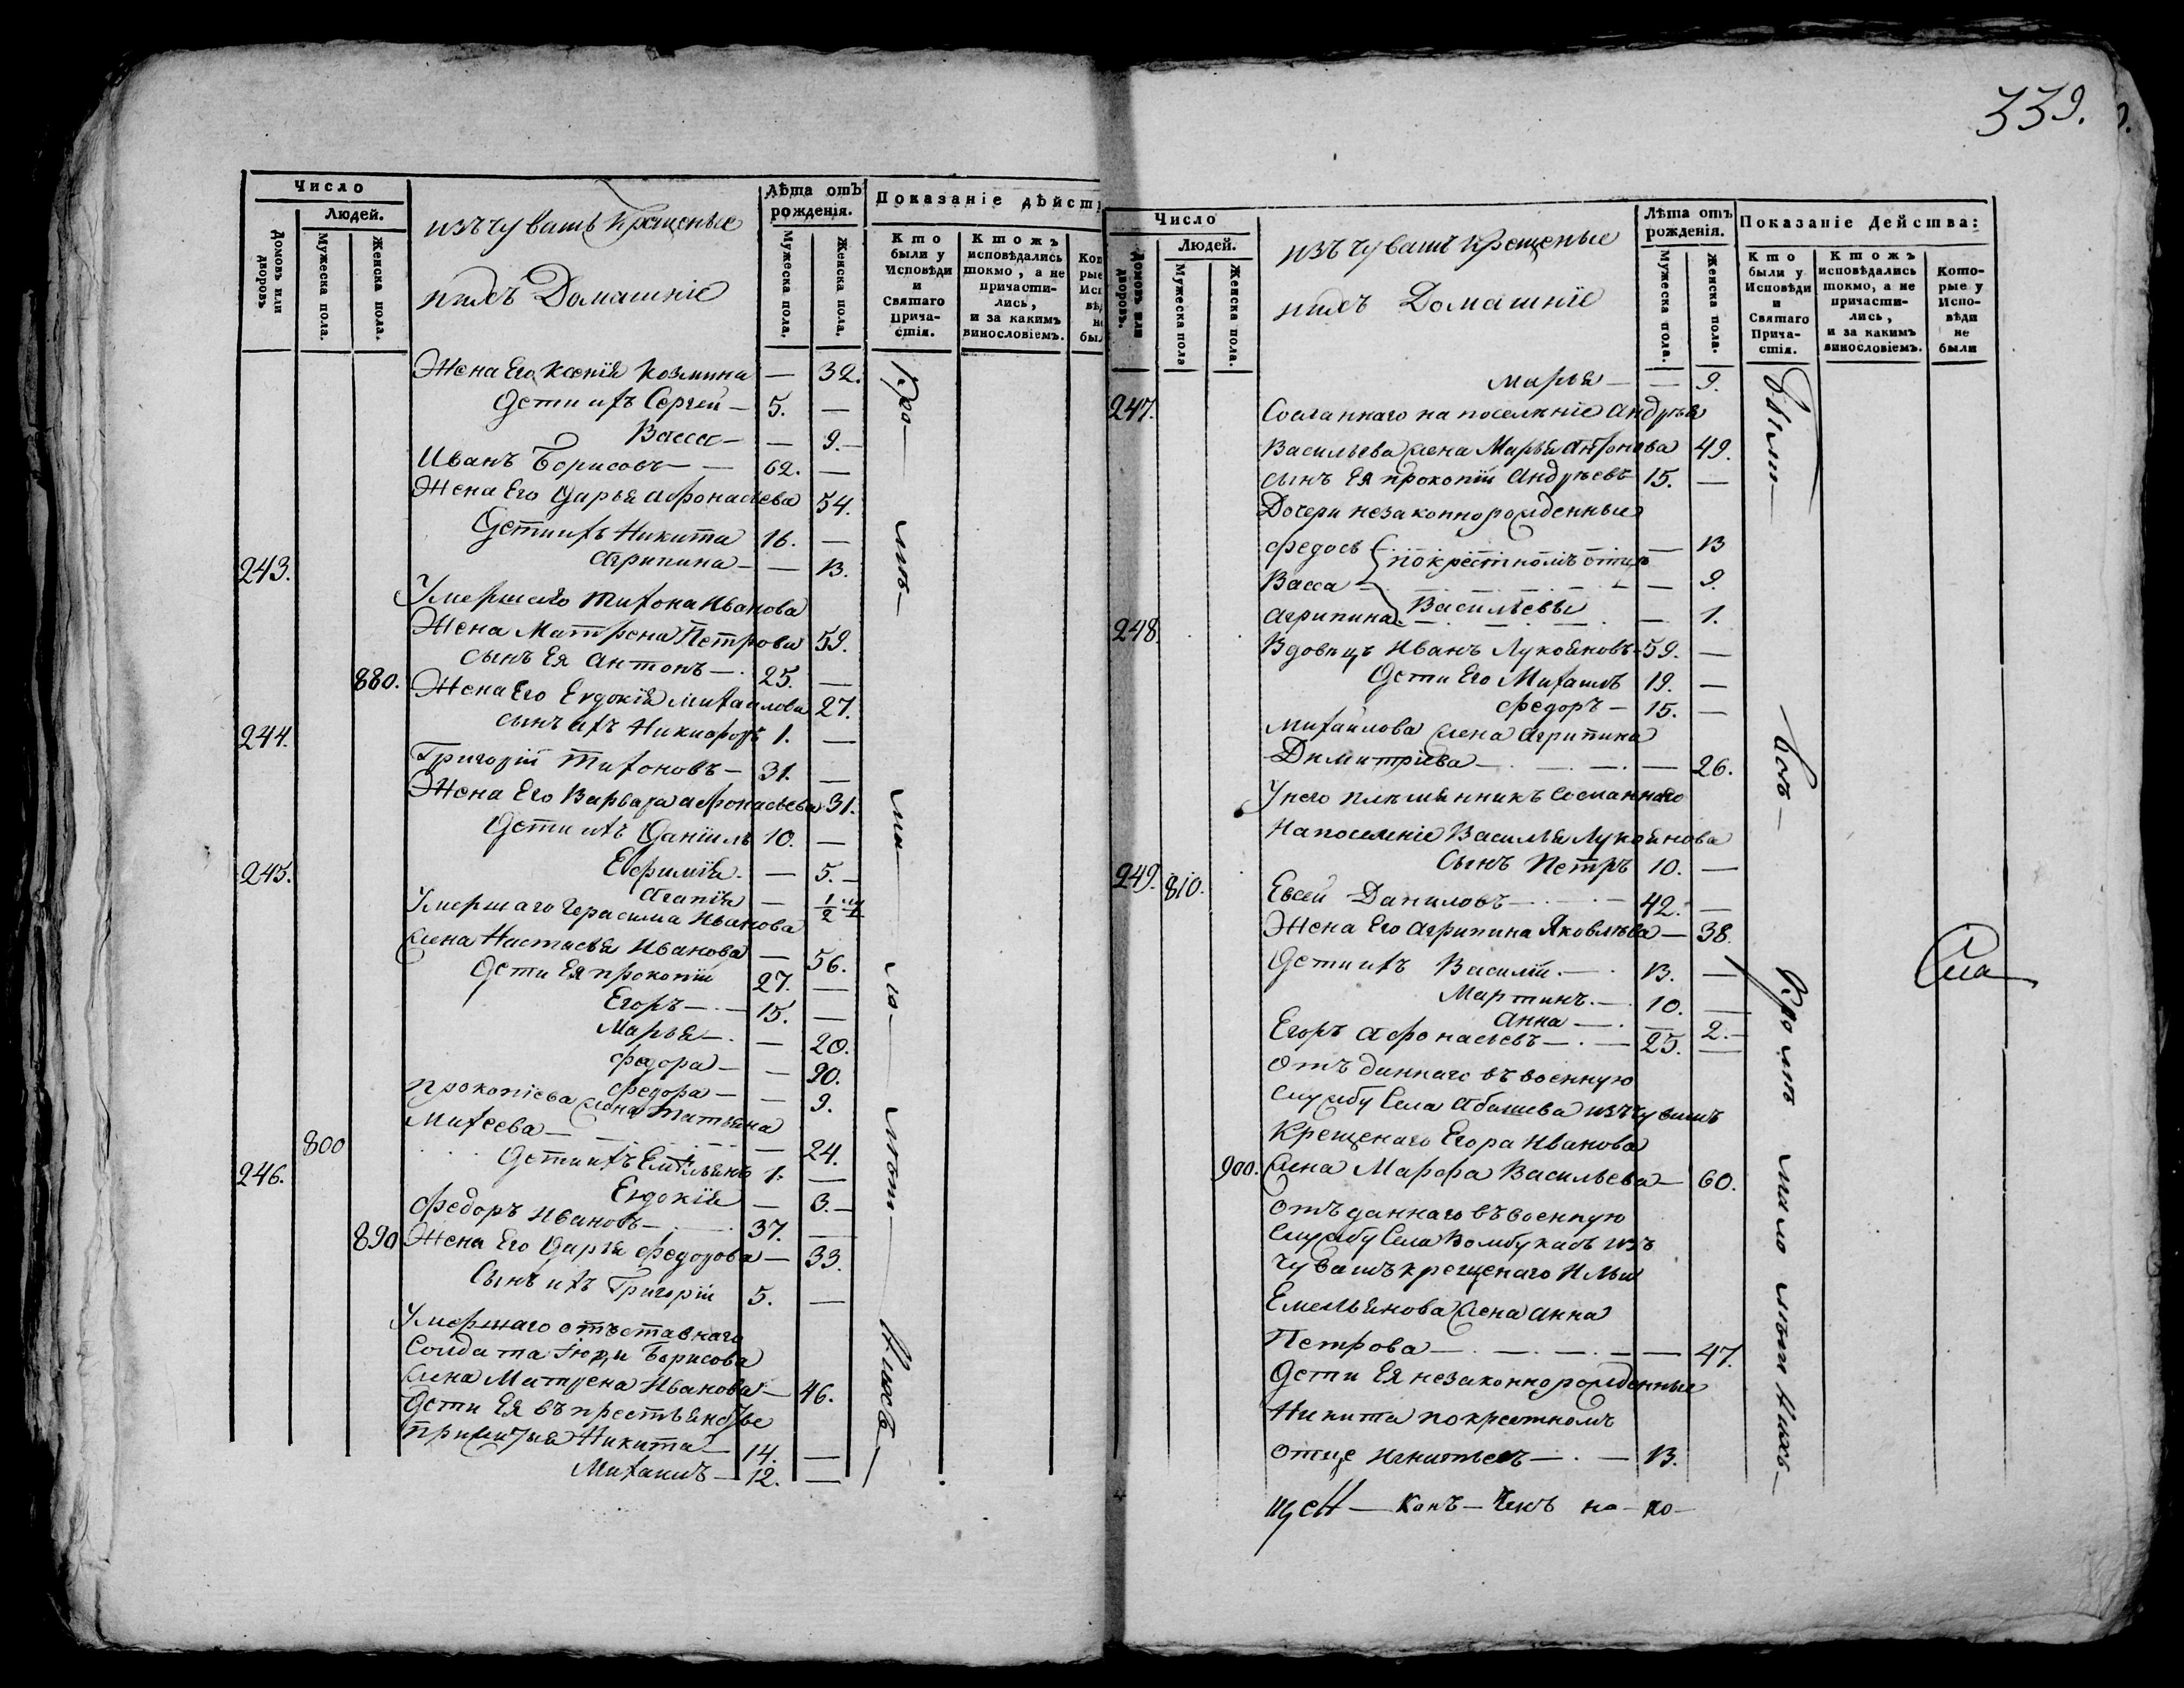 339.
Число
Людей.
Домовъ или дворовъ
Мужеска пола.
Женска пола.
изъ чувашъ Крещеные
ихъ Домашніе
Лѣта отъ рожденія.
Мужеска пола.
Женска пола.
Показаніе дѣйст
Кто были у Исповѣди и Святаго Причастія.
Ктожъ исповѣдались токмо, а не причастились, и за какимъ винословіемъ.
Жена Его Ксенія Козмина — 32.
Дети ихъ Сергей — 5. —
Васса — — 9. —
Иванъ Борисовъ — — 62. —
Жена Его Дарья Афонасьева 54.
Дети ихъ Никита 16. —
Агрипина — — 13.
243.
Умершаго Тихона Иванова
Жена Матрена Петрова 59.
сынъ Ея Антонъ — 25. —
880. Жена Его Евдокія Михаилова 27.
сынъ ихъ Никифоръ 1. —
244.
Григорій Тихоновъ — 31. —
Жена Его Варвара Афонасьева 31.
Дети ихъ Даніилъ 10. —
Евфимія — 5. —
Агапія — 1/2
245.
Умершаго Герасима Иванова
жена Настасья Иванова — 56.
Дети Ея Прокопій 27. —
Егоръ — 15. —
Марья — — 20.
Федора — — 20.
Федора — — 9.
Прокопіева жена Татьяна
Михеева — — 24.
800 Дети ихъ Емельянъ 1. —
Евдокія — 3. —
246.
Федоръ Ивановъ — 37. —
890 Жена Его Дарья Федорова — 33.
Сынъ ихъ Григорій 5. —
Умершаго отъставнаго
Солдата Борисова
жена Матрена Иванова — 46.
Дети Ея
Никита — 14. —
Михаилъ — 12. —
Число
Людей.
Домовъ или дворовъ.
Мужеска пола
Женска пола.
изъ чувашъ Крещеные
ихъ Домашніе
Лѣта отъ рожденія.
Мужеска пола.
Женска пола.
Показаніе Действа:
Кто были у Исповѣди и Святаго Причастія.
Ктожъ исповѣдались токмо, а не причастились, и за какимъ винословіемъ.
Которые у Исповѣди не были
Марья — — 9.
247. Сосланнаго на поселеніе Андрея
Васильева жена Марья Антонова 49.
сынъ Ея Прокопій Андреевъ 15. —
Дочери незаконнорожденные
Федосья — 13
по крестномъ отце
Васса — — 9.
Агрипина Васильевы — 1.
248. Вдовецъ Иванъ Лукояновъ — 59. —
Дети Его Михаилъ 19. —
Федоръ — 15. —
Михаилова жена Агрипина
Димитріева — — 26.
У него племянникъ Сосланнаго
На поселеніе Василья Лукоянова
Сынъ Петръ 10. —
249. 810. Евсей Даниловъ — 42. —
Жена Его Агрипина Яковлева — 38.
Дети ихъ Василій — 13. —
Мартинъ — 10. —
Анна — — 2. —
Егоръ Афонасьевъ — 25. —
Отъ даннаго въ военную
Службу Села Абашева изъ чувашъ
Крещенаго Егора Иванова
900. жена Марфа Васильева — 60.
Отъ даннаго въ военную
Службу Села Вомбукасъ изъ
Чувашъ крещенаго Ильи
Емельянова жена Анна
Петрова — — 47.
Дети Ея незаконнорожденные
Никита по крестномъ
отце Игнатьевъ — 13.